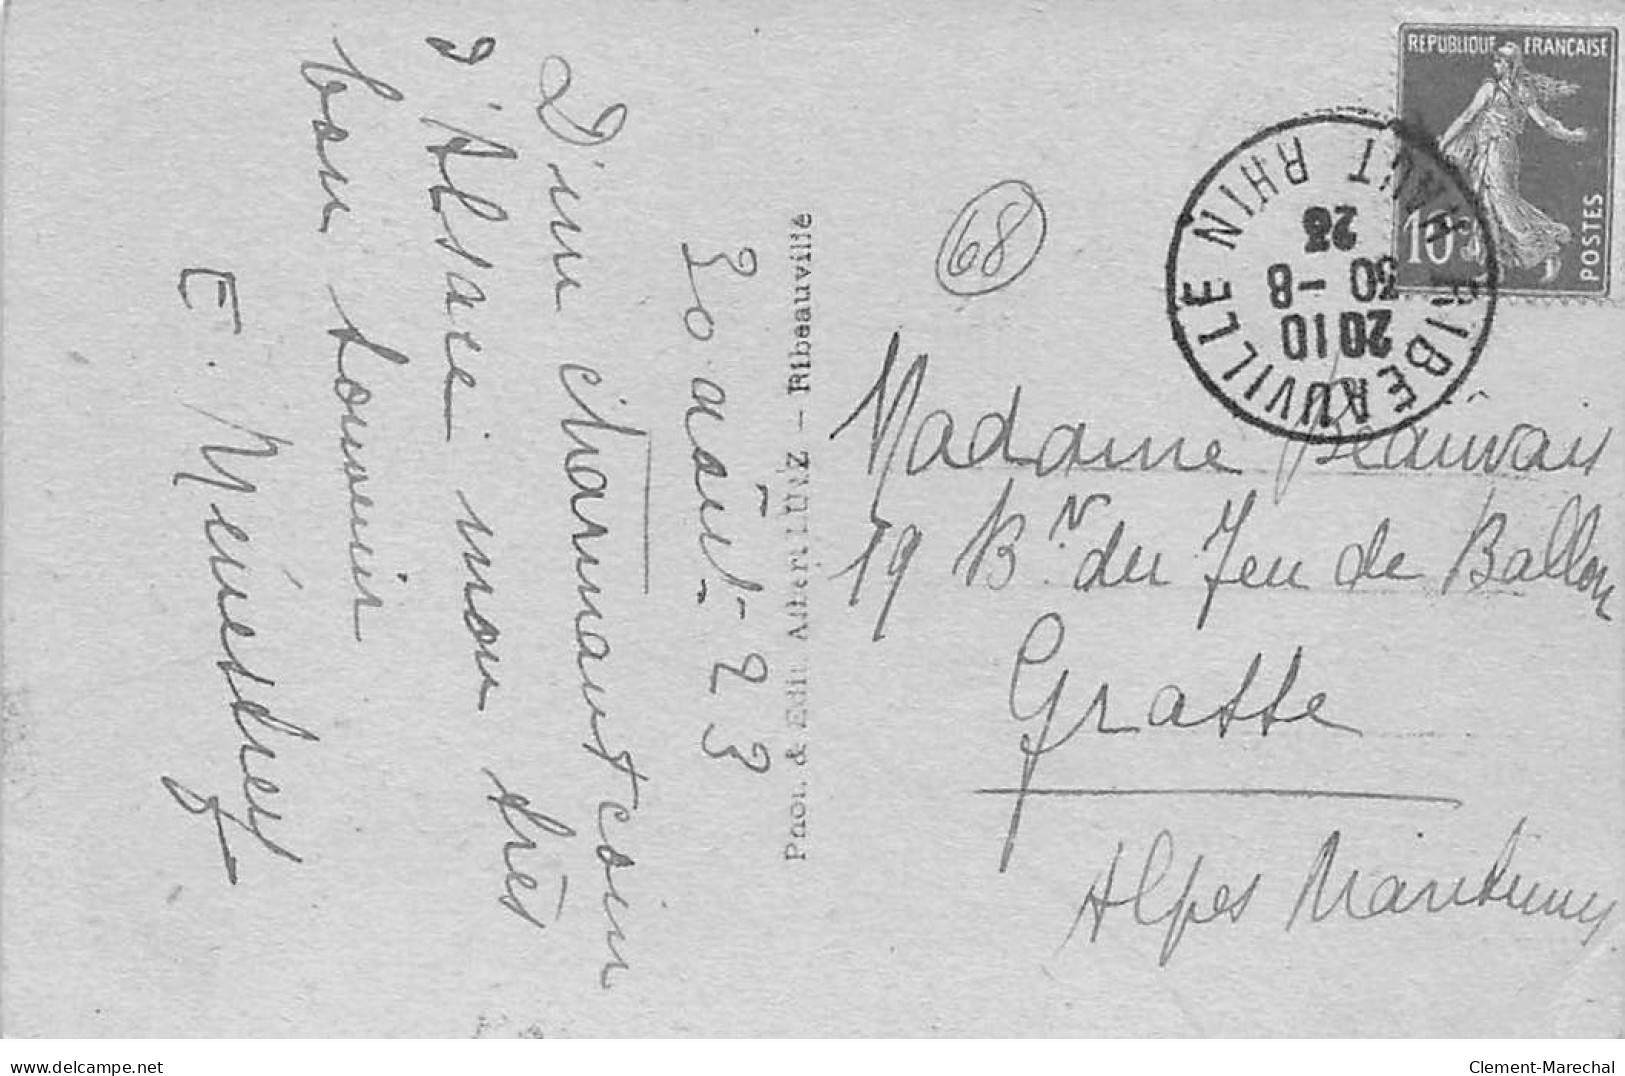 30 août - 23
D'un charmant coin
d'Alsace mon très
bon souvenir
E. Ménestrel
Phot. & Edit. Albert LUTZ – Ribeauvillé
68
REPUBLIQUE FRANÇAISE
10c
POSTES
RIBEAUVILLE HAUT RHIN
2010
30 -8
23
Madame Beauvais
19 Bd. du Jeu de Ballon
Grasse
Alpes Maritimes
delcampe.net
Clement-Marechal